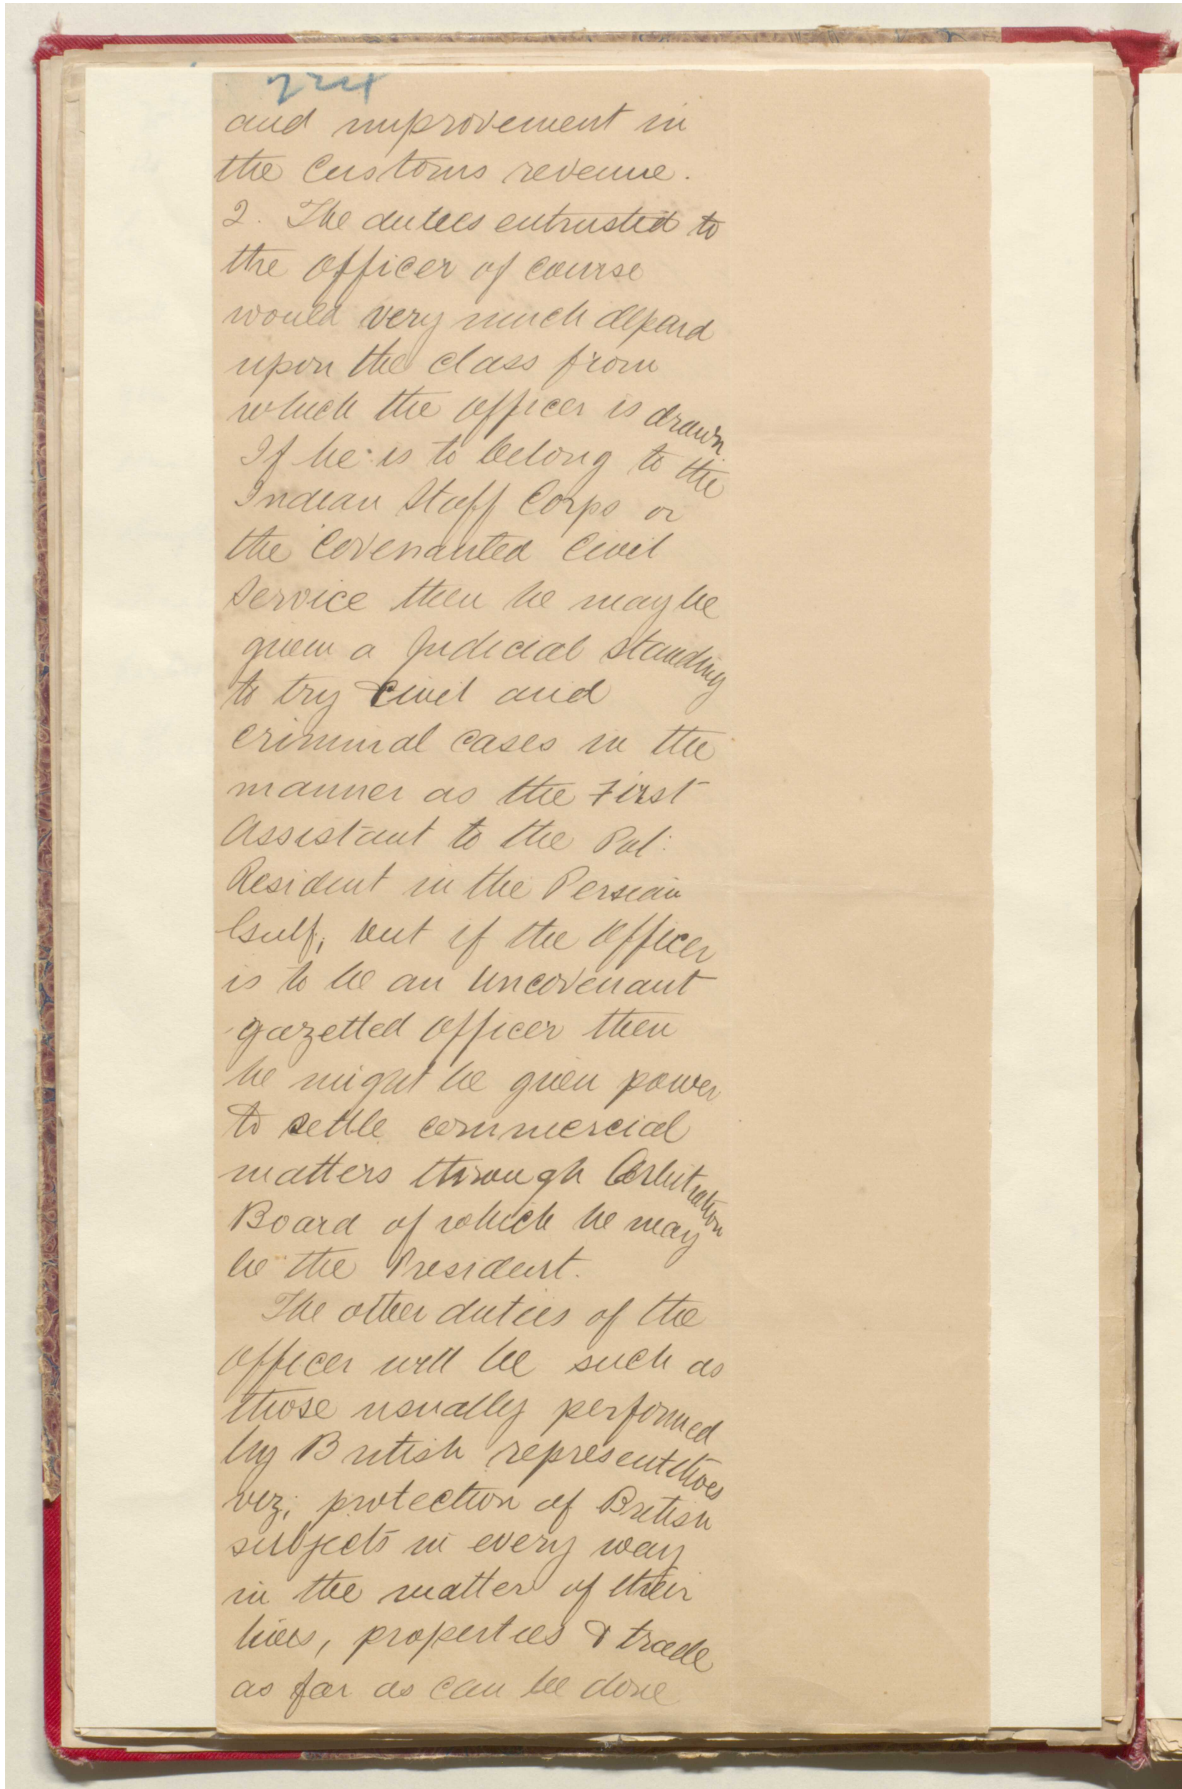 224
and improvement in
the Customs revenue.
2. The duties entrusted to
the officer of course
would very much depend
upon the class from
which the officer is drawn.
If he is to belong to the
Indian Staff Corps or
the Covenanted Civil
Service then he may be
given a Judicial standing
to try Civil and
criminal cases in the
manner as the First
Assistant to the Pol:
Resident in the Persian
Gulf; but if the Officer
is to be an uncovenant
gazetted officer then
he might be given power
to settle commercial
matters through Arbitration
Board of which he may
be the President.
The other duties of the
officer will be such as
those usually performed
by British representitives
viz; protection of British
subjects in every way
in the matter of their
lives, properties & trade
as far as can be done